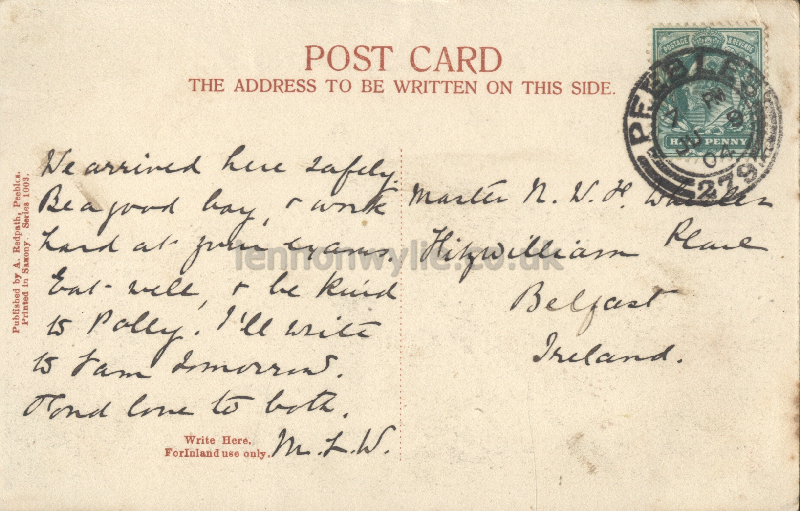 POST CARD
THE ADDRESS TO BE WRITTEN ON THIS SIDE.
POSTAGE & REVENUE
HALF PENNY
PEEBLES
04
279
We arrived here safely.
Be a good boy, & work
hard at your exams.
Eat well, & be kind
to Polly. I'll write
to Sam tomorrow.
Fond love to both.
M.L.W.
Write Here.
For Inland use only.
Published by A. Redpath, Peebles.
Printed in Saxony. Series 1003.
Master N. W. H.
Fitzwilliam Place
Belfast
Ireland.
lennonwylie.co.uk